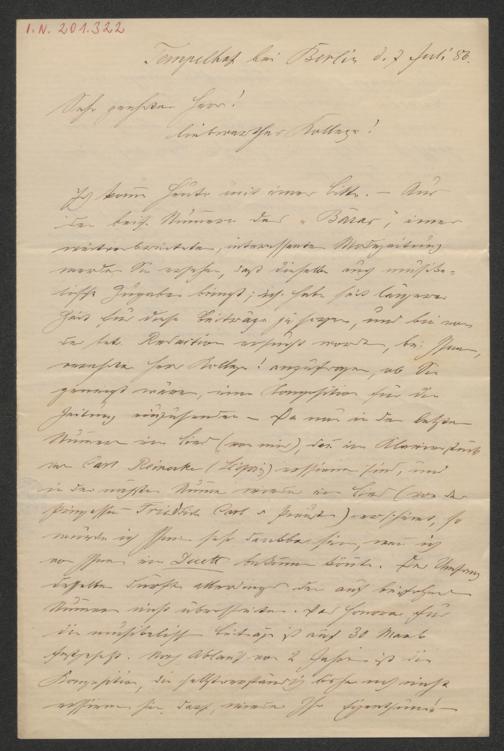 I. N. 201.322
Tempelhof bei Berlin d. 7 Juli 86.
Sehr geehrter Herr!
liebwerther Kollege!
Ich komme heute mit einer Bitte. – Aus
den beif. Nummern des „Bazar“, einer
weitverbreiteten, interessanten Modezeitung
werden Sie ersehen, daß dieselbe auch musika-
lische Zugaben bringt; ich habe seit längerer
Zeit für diese Beiträge zu sorgen, und bin von
der Redaktion ersucht worden, bei Ihnen,
verehrter Herr Kollege! anzufragen, ob Sie
geneigt wären, eine Composition für die
Zeitung einzusenden – Da nun in den letzten
Nummern ein Lied (von mir), dann ein Klavierstück
von Carl Reinecke (Leipzig) erschienen sind, und
in der nächsten Nummer wieder ein Lied (von der
Prinzessin Friedrich Carl v Preußen) erscheint, so
würde ich Ihnen sehr dankbar sein, wenn ich
von Ihnen ein Duett bekommen könnte. Der Umfang
desselben dürfte allerdings den auf beifolgenden
Nummern nicht überschreiten. Das Honorar für
die musikalischen Beiträge ist auf 30 Mark
festgesetzt. Nach Ablauf von 2 Jahren ist die
Komposition, die selbstverständlich bisher noch nicht
erschienen sein darf, wieder Ihr Eigenthum